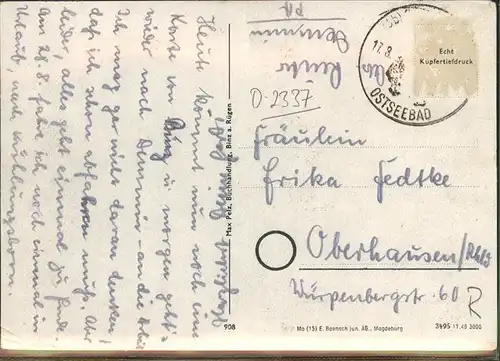 Heute kommt nun noch eine
Karte von Binz u. morgen geht's
wieder nach Demmin - an die Arbeit
Ich mag gar nicht daran denken!
daß ich schon abfahren muß. Aber
leider, alles geht einmal zu Ende.
Am 28.8. fahre ich noch einmal in
Urlaub, nach Kühlungsborn.
Max Pelz, Buchhandlung, Binz a. Rügen
908
Demmin
D-2337
17.8.
OSTSEEBAD
Echt
Kupfertiefdruck
Fräulein
Erika Fedtke
Oberhausen/Rhld
Würpenbergstr. 60
R
Mo (15) E. Baensch jun. AG., Magdeburg
3495 11.49 3000